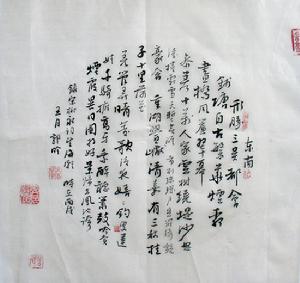 东南
形胜三吴都会
钱塘自古繁华烟柳
画桥风帘翠幕
参差十万人家云树绕堤沙怒
涛卷霜雪天堑无涯市列珠玑户盈罗绮竞
豪奢重湖叠巘清嘉有三秋桂
子十里荷花
羌管弄晴菱歌泛夜嬉嬉钓叟莲
娃千骑拥高牙乘醉听箫鼓吟赏
烟霞异日图将好景归去凤池夸
录宋柳永词望海潮 时在丙戌
五月